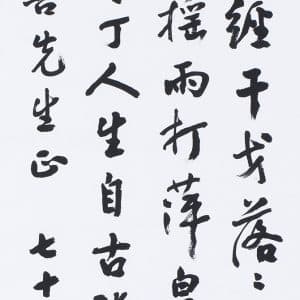 經干戈落〻
摇雨打萍皇
丁人生自古
先生正 七十